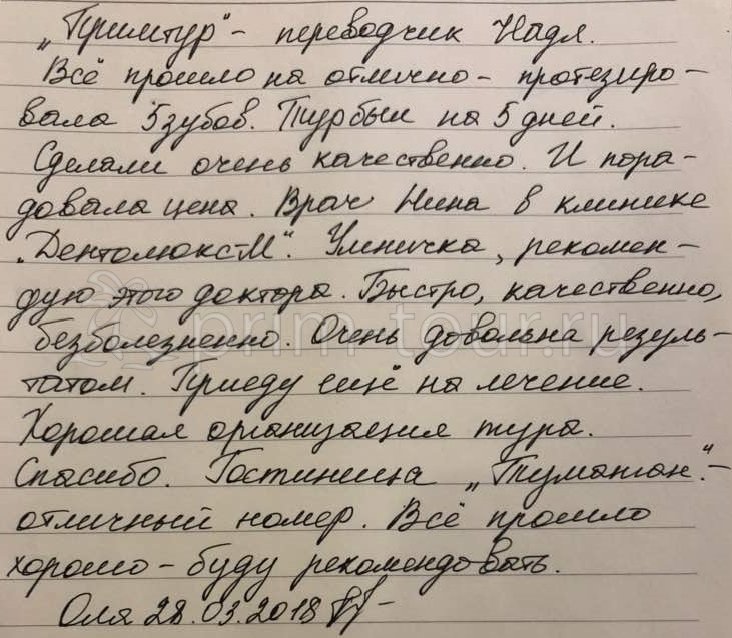 „Примтур“ - переводчик Надя.
Всё прошло на отлично - протезиро-
вала 5 зубов. Тур был на 5 дней.
Сделали очень качественно. И пора-
довала цена. Врач Нина в клинике
„Дентолюкс-М“. Умничка, рекомен-
дую этого доктора. Быстро, качественно,
безболезненно. Очень довольна резуль-
татом. Приеду ещё на лечение.
Хорошая организация тура.
Спасибо. Гостиница „Туманган“ -
отличный номер. Всё прошло
хорошо - буду рекомендовать.
Оля 28.03.2018
prim-tour.ru